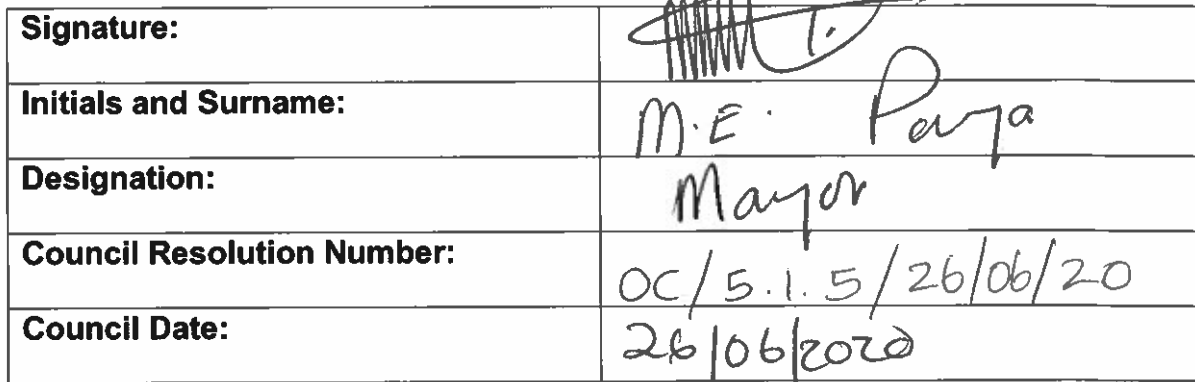 Signature:
Initials and Surname: M.E. Paya
Designation: Mayor
Council Resolution Number: OC/5.1.5/26/06/20
Council Date: 26/06/2020